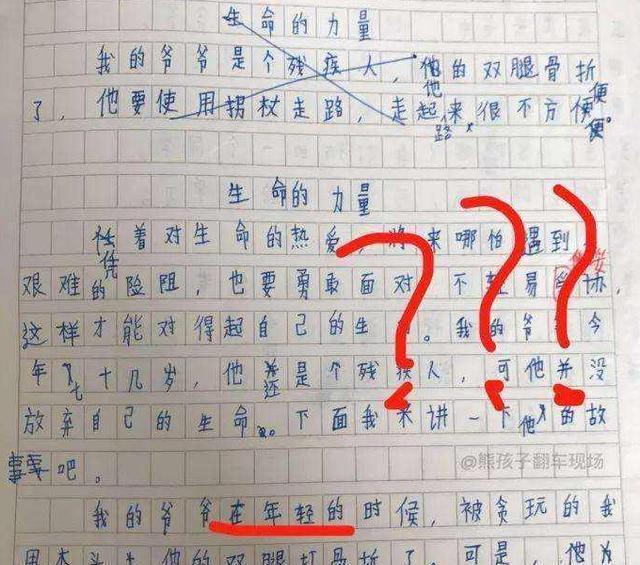 生命的力量
我的爷爷是个残疾人，他的双腿骨折
他
便
了，他要使用拐杖走路，走起来很不方便
路
便。
生命的力量
着对生命的热爱，将来哪怕遇到
凭
艰难的险阻，也要勇敢面对 不轻易 协，
这样才能对得起自己的生 。我的爷 今
年 十几岁，他 是个残疾人，可他并没
七
还
放弃自己的生命。下面我来讲一下他的故
事吧。
@熊孩子翻车现场
我的爷爷在年轻的时候，被贪玩的我
用木头 他的双腿打骨折了，可是，他为